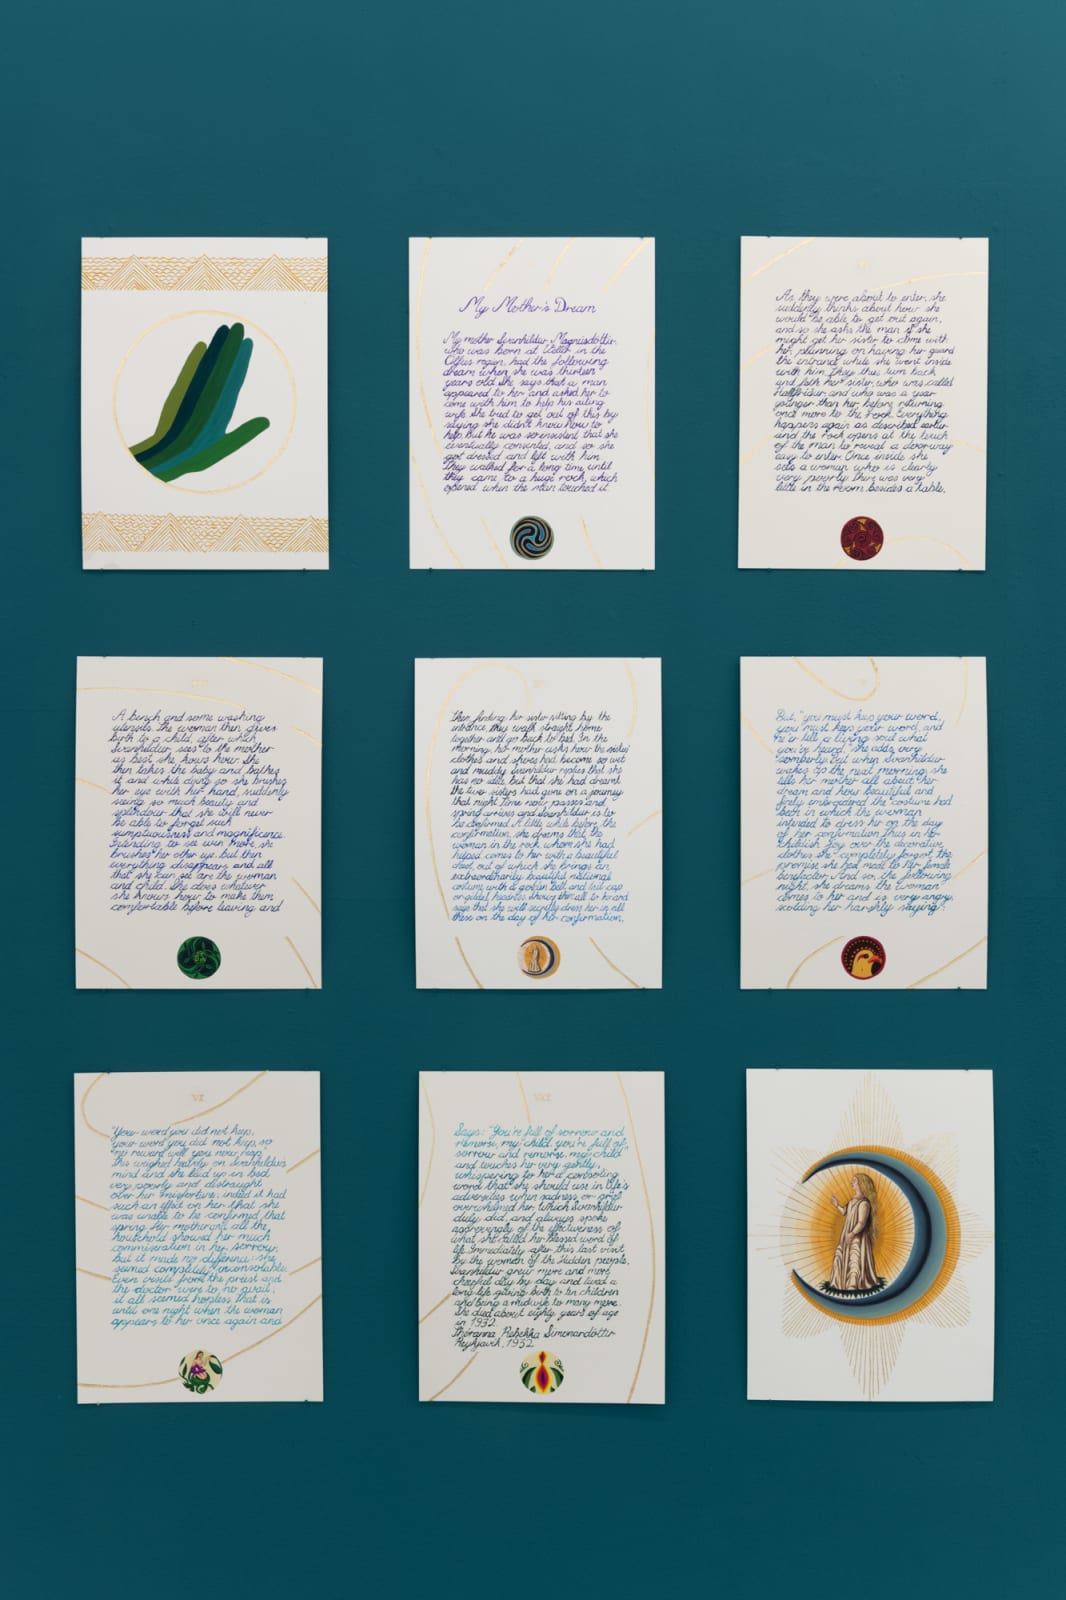 My Mother's Dream
My mother Svanhildur Magnúsdóttir,
who was born at in the
Ölfus region, had the following
dream when she was thirteen
years old. She says that a man
appeared to her and asked her to
come with him to help his ailing
wife. She tried to get out of this by
saying she didn't know how to
help. But he was so insistent that she
eventually consented, and so she
got dressed and left with him.
They walked for a long time, until
they came to a huge rock, which
opened when the man touched it.
As they were about to enter, she
suddenly thinks about how she
would be able to get out again,
and so she asks the man if she
might get her sister to come with
her, planning on having her guard
the entrance while she went inside
with him. They thus turn back
and fetch her sister, who was called
Hallfríður and who was a year
younger than her before returning
once more to the rock. Everything
happens again as described earlier
and the rock opens at the touch
of the man to reveal a doorway
easy to enter. Once inside she
sees a woman who is clearly
very poorly. There was very
little in the room besides a table,
III
A bench and some washing
utensils. The woman then gives
birth to a child, after which
Svanhildur sees to the mother
as best she knows how. She
then takes the baby and bathes
it and while doing so she brushes
her eye with her hand, suddenly
seeing so much beauty and
splendour that she will never
be able to forget such
sumptuousness and magnificence.
Intending to see even more, she
brushes her other eye, but then
everything disappears and all
that she can see are the woman
and child. She does whatever
she knows how to make them
comfortable before leaving and
then, finding her sister sitting by the
entrance, they walk straight home
together and go back to bed. In the
morning, her mother asks how the sisters'
clothes and shoes had become so wet
and muddy. Svanhildur replies that she
has no idea but that she had dreamt
the two sisters had gone on a journey
that night. Time now passes and
spring arrives and Svanhildur is to
be confirmed. A little while before the
confirmation, she dreams that the
woman in the rock, whom she had
helped, comes to her with a beautiful
chest, out of which she brings an
extraordinarily beautiful national
costume with a golden belt and tail cap
or gilded headdress, shows them all to her and
says that she will secretly dress her in all
these on the day of her confirmation.
But, "you must keep your word,
you must keep your word, and
never tell a living soul what
you've heard", she adds very
somberly. But when Svanhildur
wakes up the next morning, she
tells her mother all about her
dream and how beautiful and
finely embroidered the costume had
been in which the woman
intended to dress her on the day
of her confirmation. Thus in her
childish joy over the decorative
clothes she completely forgot the
promise she had made to her female
benefactor. And so, the following
night, she dreams the woman
comes to her and is very angry,
scolding her harshly saying:
VI
"Your word you did not keep,
your word you did not keep, so
no reward will you now reap."
This weighed heavily on Svanhildur's
mind and she laid up in bed
very poorly and distraught
over her misfortune; indeed it had
such an effect on her that she
was unable to be confirmed that
spring. Her mother and all the
household showed her much
commiseration in her sorrow,
but it made no difference: she
seemed completely inconsolable.
Even visits from the priest and
the doctor were to no avail;
it all seemed hopeless, that is
until one night when the woman
appears to her once again and
VII
Says: "You're full of sorrow and
remorse, my child, you're full of
sorrow and remorse, my child"
and touches her very gently,
whispering to her a consoling
word that she should use in life's
adversities when sadness or grief
overwhelmed her, which Svanhildur
duly did, and always spoke
approvingly of the effectiveness of
what she called her blessed word of
life. Immediately after this last visit
by the woman of the Hidden people,
Svanhildur grew more and more
cheerful day by day and lived a
long life, giving birth to ten children
and being a midwife to many more.
She died about eighty years of age
in 1932.
Þóranna Rebekka Símonardóttir
Reykjavík, 1932.